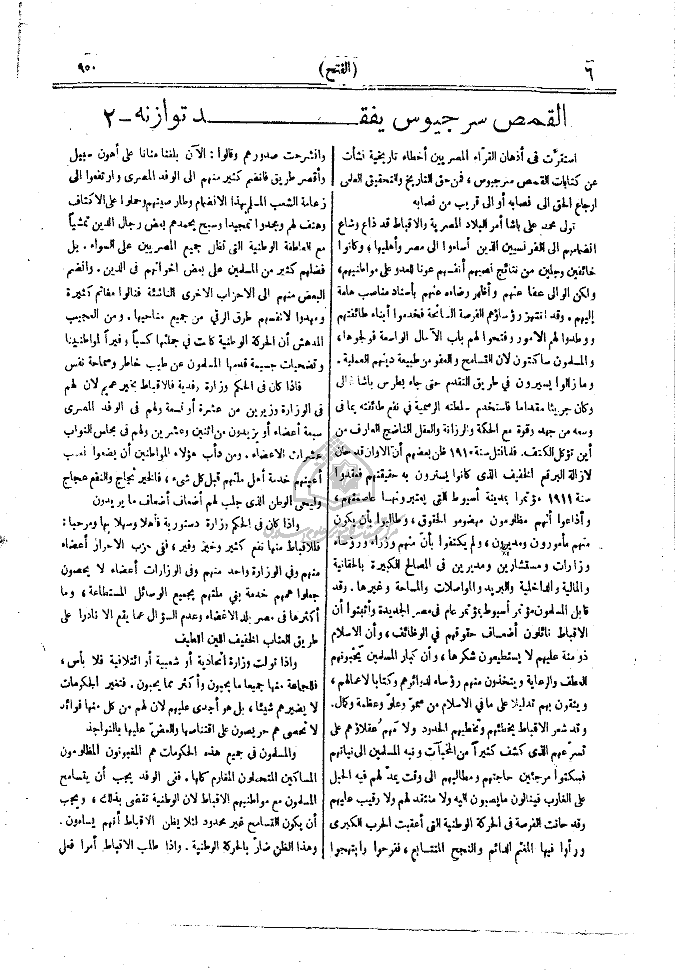 ٦
(الفتح)
٩٥٠
القمص سرجيوس يفقـــــد توازنه - ٢
استقرت فى أذهان القراء المصريين أخطاء تاريخية نشأت
عن كتابات القمص سرجيوس، فمن حق التاريخ والتحقيق العلمى
ارجاع الحق الى نصابه أو الى قريب من نصابه
تولى محمد على باشا أمر البلاد المصرية والاقباط قد ذاع وشاع
انضمامهم الى الفرنسيين الذين أساءوا الى مصر وأهليها، وكانوا
خائفين وجلين من نتائج نصبهم أنفسهم عونا للعدو على مواطنيهم،
ولكن الوالى عفا عنهم وأظهر رضاءه عنهم بأسناد مناصب هامة
إليهم. وقد انتهز رؤساؤهم الفرصة السانحة فخدموا أبناء طائفتهم
ووطدوا لهم الامور وفتحوا لهم باب الآمال الواسعة فولجوها،
والمسلمون ساكتون لان التسامح والعفو من طبيعة دينهم العملية.
وما زالوا يسيرون فى طريق التقدم حتى جاء بطرس باشا غالى
وكان جريئا مقداما فاستخدم سلطته الرسمية فى نفع طائفته بما فى
وسعه من جهد وقوة مع الحكمة والرزانة والعقل الناضج العارف من
أين تؤكل الكتف. فلما قتل سنة ١٩١٠ ظن بعضهم أن الاوان قد حان
لازالة البرقع الخفيف الذى كانوا يسترون به حقيقتهم فعقدوا
سنة ١٩١١ مؤتمرا بمدينة أسيوط التى يعتبرونها عاصمتهم،
وأذاعوا أنهم مظلومون مهضومو الحقوق، وطالبوا بأن يكون
منهم مأمورون ومديرون، ولم يكتفوا بأن منهم وزراء ورؤساء
وزارات ومستشارين ومديرين فى المصالح الكبيرة بالحقانية
والمالية والداخلية والبريد والمواصلات والمساحة وغيرها. وقد
قابل المسلمون مؤتمر أسيوط بمؤتمر عام فى مصر الجديدة وأثبتوا أن
الاقباط نائلون أضعاف حقوقهم فى الوظائف، وأن الاسلام
ذو منة عليهم لا يستطيعون شكرها، وأن كبار المسلمين يمنحونهم
العطف والرعاية ويتخذون منهم رؤساء لدوائرهم وكتابا لاعمالهم،
ويثقون بهم تدليلا على ما فى الاسلام من سمو وعلو وعظمة وكمال.
وقد شعر الاقباط بخطئهم وتخطيهم الحدود ولامهم عقلاؤهم على
تسرعهم الذى كشف كثيرا من المخبآت ونبه المسلمين الى نياتهم
فسكتوا مرجئين حاجتهم ومطاليبهم الى وقت يمد لهم فيه الحبل
على الغارب فينالون ما يصبون اليه ولا منتقد لهم ولا رقيب عليهم
وقد حانت الفرصة فى الحركة الوطنية التى أعقبت الحرب الكبرى
ورأوا فيها المغنم الدائم والنجح المتتابع، ففرحوا وابتهجوا
وانشرحت صدورهم وقالوا: الآن بلغنا منانا على أهون سبيل
وأقصر طريق فانضم كثير منهم الى الوفد المصرى وارتفعوا الى
زعامة الشعب المسلم بهذا الانضمام وطار صيتهم وحملوا على الاكتاف
وهتف لهم ومجدوا تمجيدا وسبح بحمدهم بعض رجال الدين تمشيا
مع العاطفة الوطنية التى تظل جميع المصريين على السواء. بل
فضلهم كثير من المسلمين على بعض اخوانهم فى الدين. وانضم
البعض منهم الى الاحزاب الاخرى الناشئة فنالوا مغانم كثيرة
ومهدوا لانفسهم طرق الرقي من جميع مناحيها. ومن العجيب
المدهش أن الحركة الوطنية كانت فى جملتها كسبا وفيرا لمواطنينا
وتضحيات جسيمة قدمها المسلمون عن طيب خاطر وسماحة نفس
فاذا كان فى الحكم وزارة وفدية فالاقباط بخير عميم لان لهم
فى الوزارة وزيرين من عشرة أو تسعة ولهم فى الوفد المصرى
سبعة أعضاء أو يزيدون من اثنين وعشرين ولهم فى مجلس النواب
عشرات الاعضاء. ومن دأب هؤلاء المواطنين أن يضعوا نصب
أعينهم خدمة أهل ملتهم قبل كل شىء، فالخير ثجاج والنفع عجاج
وليحى الوطن الذى جلب لهم أضعاف أضعاف ما يريدون
واذا كان فى الحكم وزارة دستورية فأهلا وسهلا بها ومرحبا:
فللاقباط منها نفع كثير وخير وفير، ففى حزب الاحرار أعضاء
منهم وفى الوزارة واحد منهم وفى الوزارات أعضاء لا يحصون
جعلوا همهم خدمة بني ملتهم بجميع الوسائل المستطاعة، وما
أكثرها فى مصر بلد الاغضاء وعدم السؤال عما يقع الا نادرا على
طريق العتاب الخفيف اللين اللطيف
واذا تولت وزارة اتحادية أو شعبية أو ائتلافية فلا بأس،
فللجماعة منها جميعا ما يحبون وأكثر مما يحبون. فتغير الحكومات
لا يضيرهم شيئا، بل هو أجدى عليهم لان لهم من كل منها فوائد
لا تحصى هم حريصون على اقتناصها والعض عليها بالنواجذ
والمسلمون فى جميع هذه الحكومات هم المغبونون المظلومون
المساكين المتحملون المغارم كلها. ففى الوفد يجب أن يتسامح
المسلمون مع مواطنيهم الاقباط لان الوطنية تقضى بذلك، ويجب
أن يكون التسامح غير محدود لئلا يظن الاقباط أنهم يساءون.
وهذا الظن ضار بالحركة الوطنية. واذا طلب الاقباط أمرا فعل